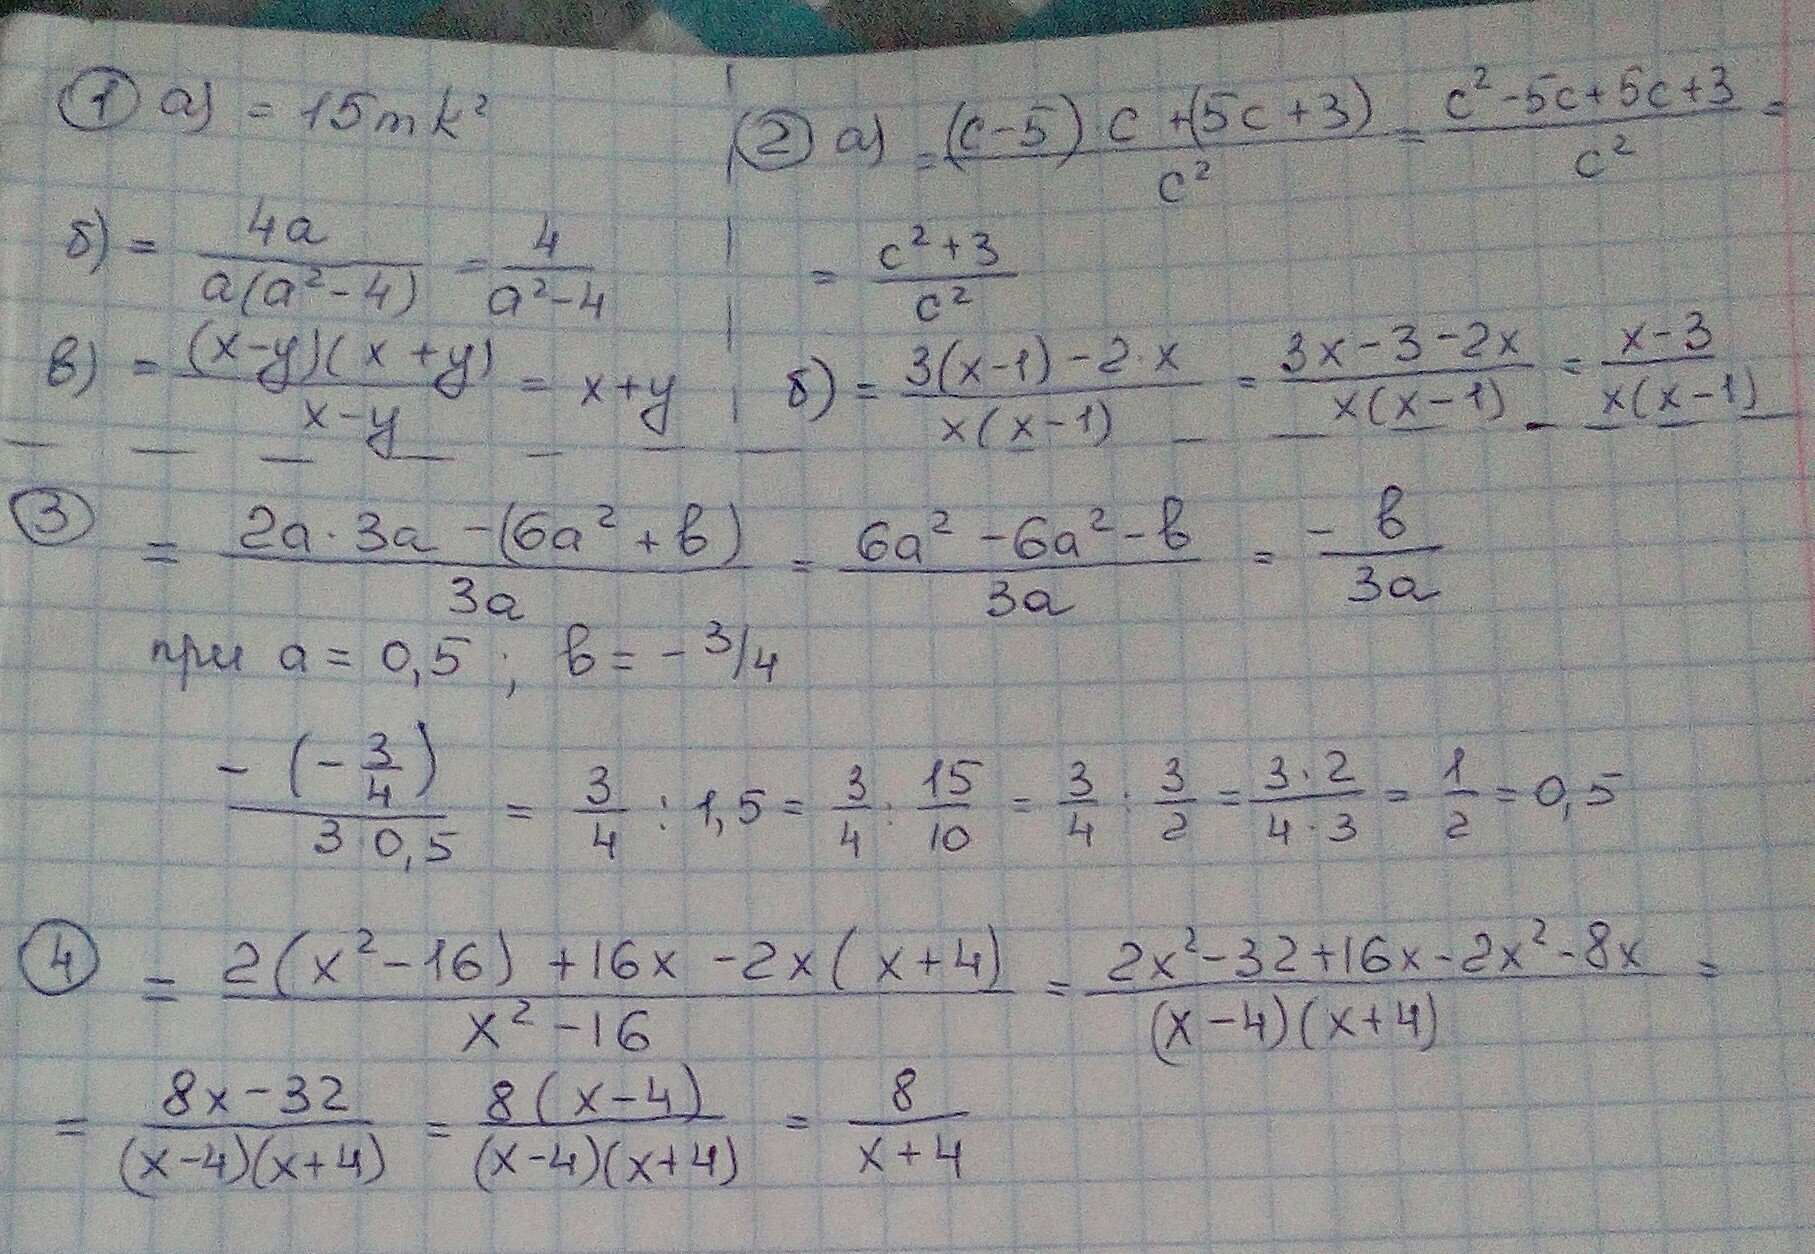 ① а) = 15mk²
б) = 4a / a(a²-4) = 4 / a²-4
в) = (x-y)(x+y) / x-y = x+y
② а) = (c-5)·c+(5c+3) / c² = c²-5c+5c+3 / c² =
= c²+3 / c²
б) = 3(x-1)-2·x / x(x-1) = 3x-3-2x / x(x-1) = x-3 / x(x-1)
③ = 2a·3a-(6a²+в) / 3a = 6a²-6a²-в / 3a = -в / 3a
при a = 0,5 ; в = -3/4
-(-3/4) / 3·0,5 = 3/4 : 1,5 = 3/4 : 15/10 = 3/4 : 3/2 = 3·2 / 4·3 = 1/2 = 0,5
④ = 2(x²-16)+16x-2x(x+4) / x²-16 = 2x²-32+16x-2x²-8x / (x-4)(x+4) =
= 8x-32 / (x-4)(x+4) = 8(x-4) / (x-4)(x+4) = 8 / x+4